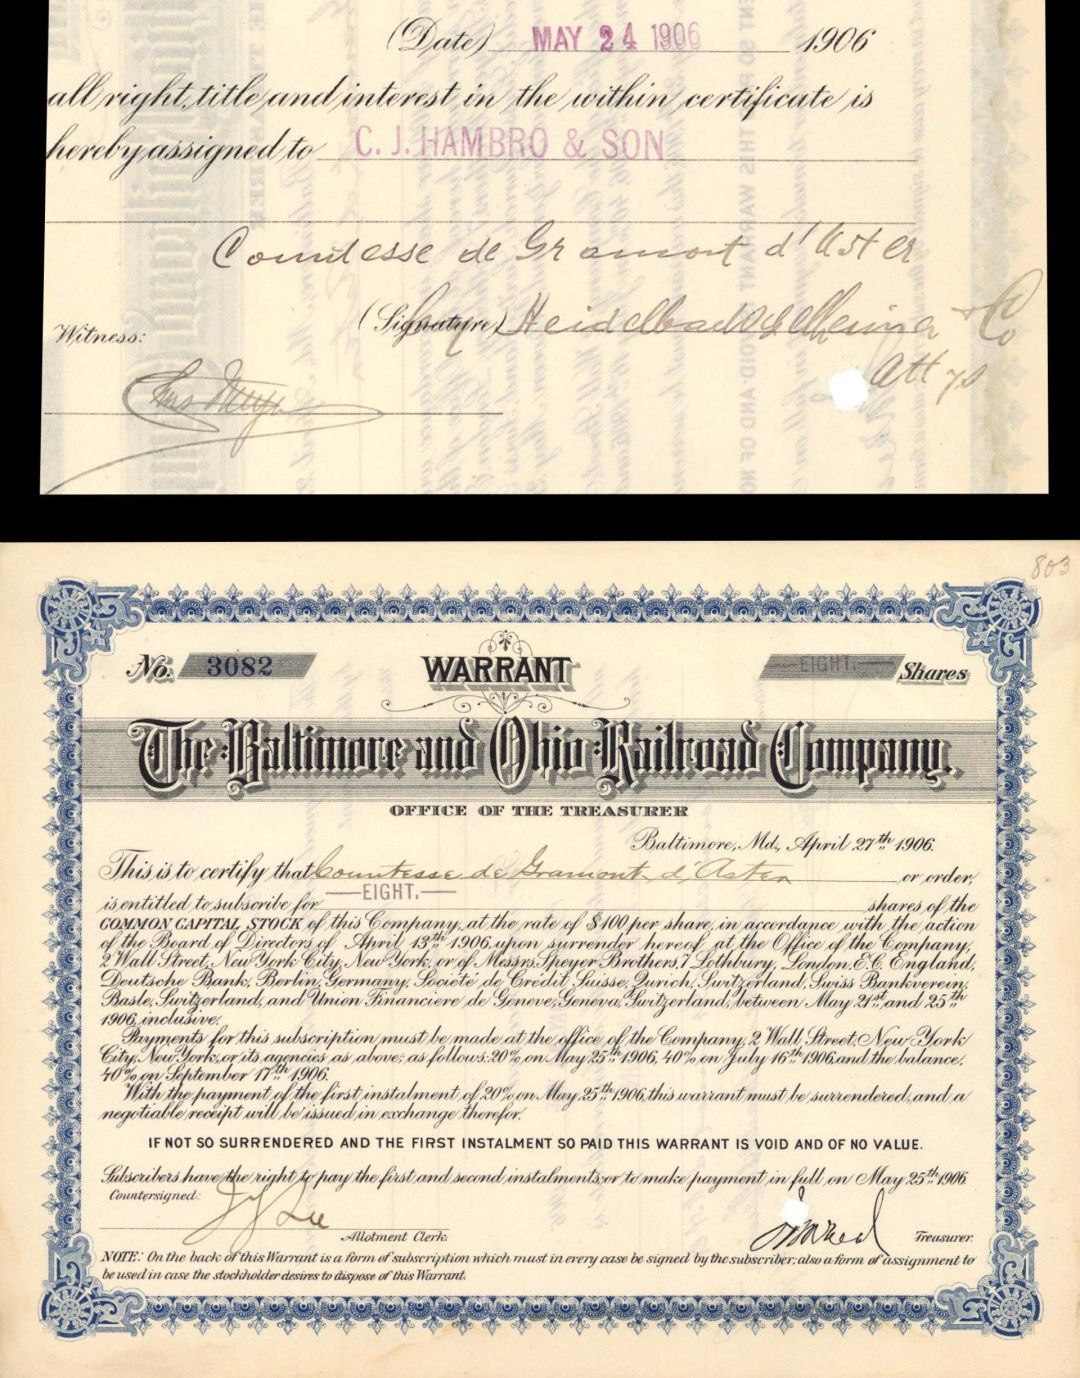 (Date) MAY 24 1906 1906
all right, title and interest in the within certificate is
hereby assigned to C. J. HAMBRO & SON
Comtesse de Gramont d'Aster
(Signature) Heidelbach Ickelheimer & Co
Witness:
Attys
803
No. 3082 WARRANT EIGHT. Shares
The Baltimore and Ohio Railroad Company.
OFFICE OF THE TREASURER
Baltimore, Md., April 27th 1906.
This is to certify that Comtesse de Gramont d'Aster or order,
is entitled to subscribe for EIGHT. shares of the
COMMON CAPITAL STOCK of this Company, at the rate of $100 per share, in accordance with the action
of the Board of Directors of April 13th 1906, upon surrender hereof at the Office of the Company,
2 Wall Street, New York City, New York, or of Messrs. Speyer Brothers, 7 Lothbury, London, E.C. England,
Deutsche Bank, Berlin, Germany, Société de Crédit Suisse, Zurich, Switzerland, Swiss Bankverein,
Basle, Switzerland, and Union Financière de Genève, Geneva, Switzerland, between May 21st and 25th
1906, inclusive.
Payments for this subscription must be made at the office of the Company, 2 Wall Street, New York
City, New York, or its agencies as above, as follows: 20% on May 25th 1906, 40% on July 16th 1906, and the balance,
40% on September 17th 1906.
With the payment of the first instalment of 20% on May 25th 1906, this warrant must be surrendered, and a
negotiable receipt will be issued in exchange therefor.
IF NOT SO SURRENDERED AND THE FIRST INSTALMENT SO PAID THIS WARRANT IS VOID AND OF NO VALUE.
Subscribers have the right to pay the first and second instalments, or to make payment in full on May 25th 1906.
Countersigned:
Lee
Allotment Clerk. Treasurer.
NOTE: On the back of this Warrant is a form of subscription which must in every case be signed by the subscriber; also a form of assignment to
be used in case the stockholder desires to dispose of this Warrant.